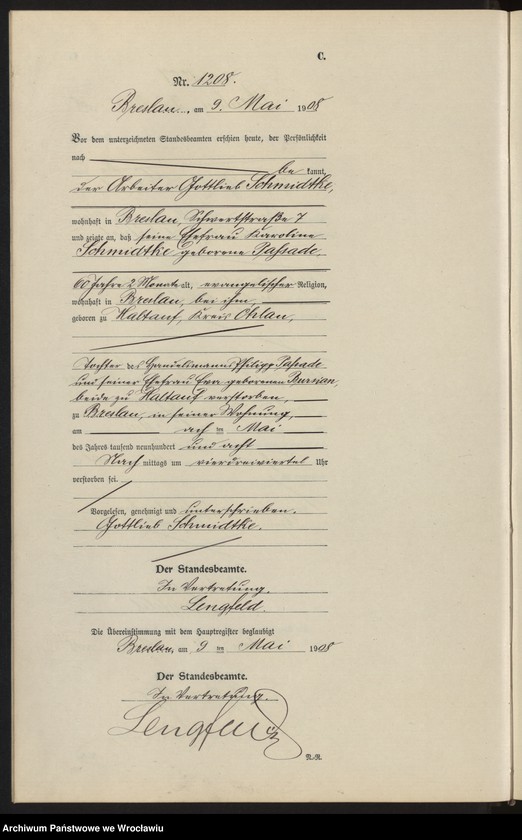 C.
Nr. 1208.
Breslau, am 9. Mai 1908
Vor dem unterzeichneten Standesbeamten erschien heute, der Persönlichkeit
nach
bekannt,
der Arbeiter Gottlieb Schmidtke,
wohnhaft in Breslau, Schwertstraße 7
und zeigte an, daß seine Ehefrau Karoline
Schmidtke geborene Passade,
60 Jahre 2 Monate alt, evangelischer Religion,
wohnhaft in Breslau, bei ihm,
geboren zu Haltauf, Kreis Ohlau,
Tochter des Handelsmanns Philipp Passade
und seiner Ehefrau Eva geborenen Burnian,
beide zu Haltauf verstorben,
zu Breslau, in seiner Wohnung,
am acht ten Mai
des Jahres tausend neunhundert und acht
Nachmittags um vierdreiviertel Uhr
verstorben sei.
Vorgelesen, genehmigt und unterschrieben.
Gottlieb Schmidtke.
Der Standesbeamte.
In Vertretung.
Lengfeld.
Die Übereinstimmung mit dem Hauptregister beglaubigt
Breslau, am 9 ten Mai 1908
Der Standesbeamte.
In Vertretung.
Lengfeld
N.-R.
Archiwum Państwowe we Wrocławiu